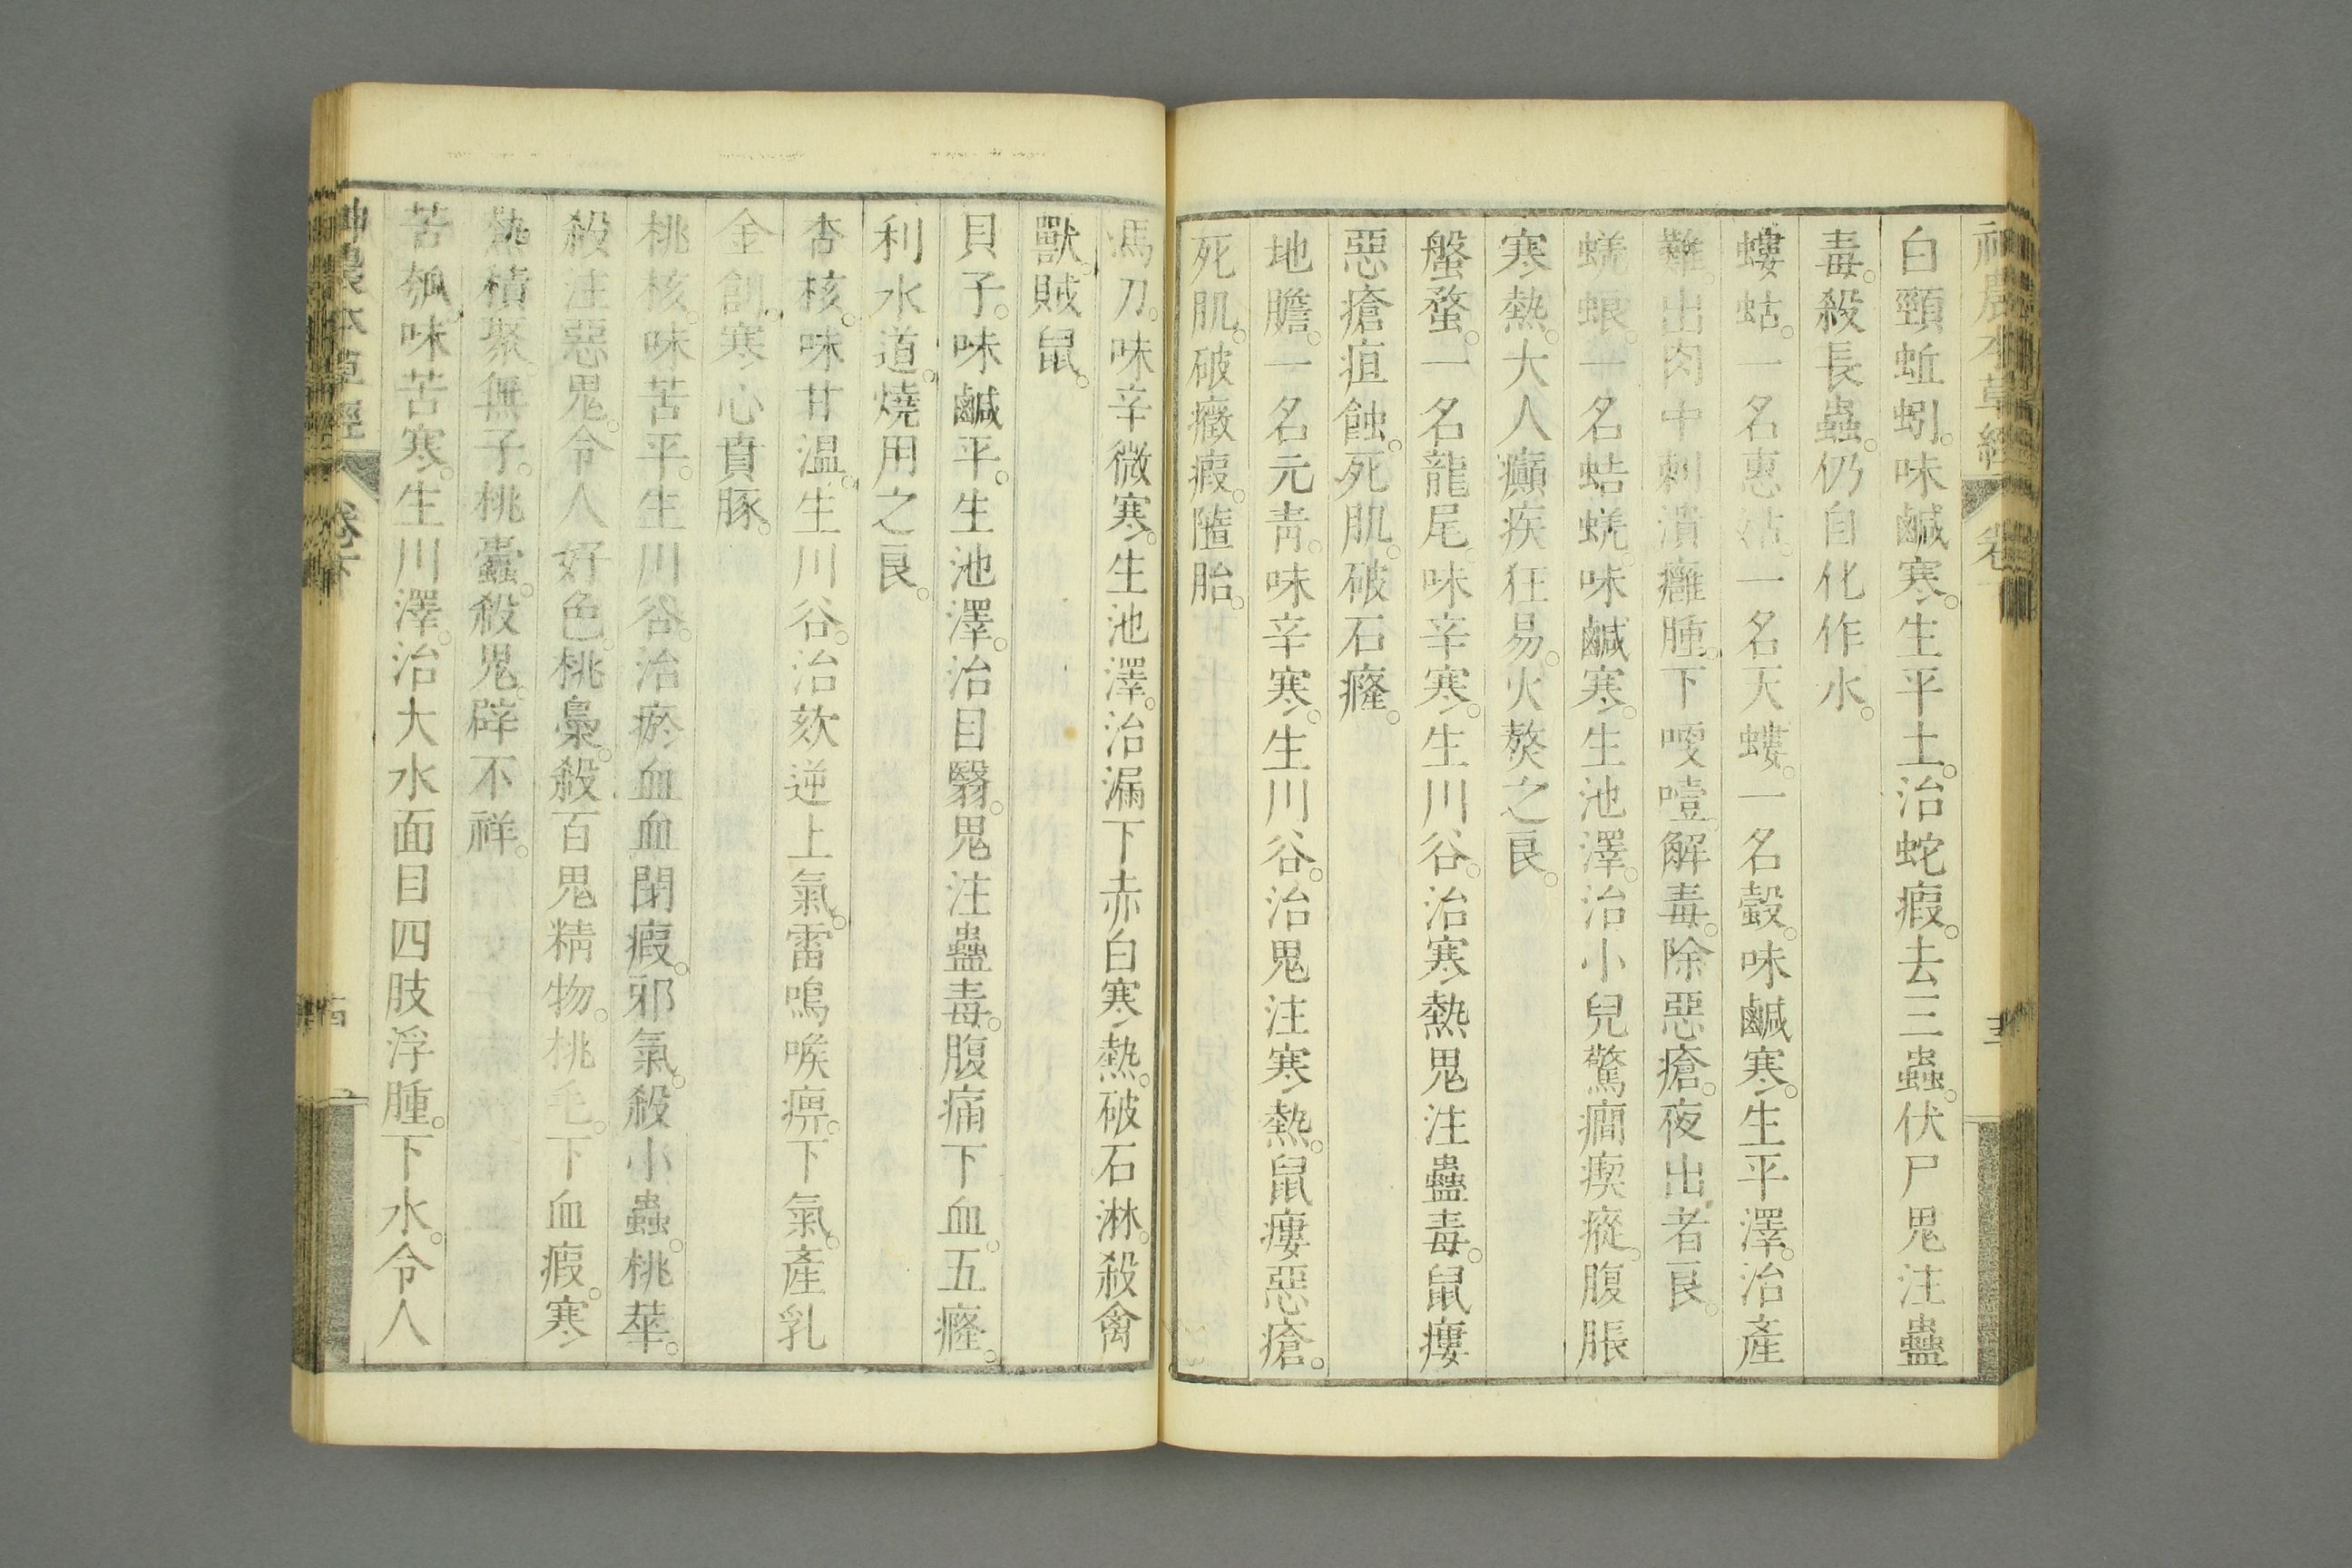 神農本草經 卷下
白頸蚯蚓。味鹹寒。生平土。治蛇瘕。去三蟲。伏尸鬼注蠱
毒。殺長蟲。仍自化作水。
螻蛄。一名蕙蛄。一名天螻。一名蟄。味鹹寒。生平澤。治產
難。出肉中刺潰癰腫。下哽噎。解毒。除惡瘡。夜出者良。
蜣蜋。一名蛣蜣。味鹹寒。生池澤。治小兒驚癇瘈瘲。腹脹
寒熱。大人癲疾狂易。火熬之良。
螌蝥。一名龍尾。味辛寒。生川谷。治寒熱鬼注蠱毒。鼠瘻
惡瘡疽蝕。死肌。破石癃。
地膽。一名元青。味辛寒。生川谷。治鬼注寒熱。鼠瘻惡瘡。
死肌。破癥瘕。墮胎。
馬刀。味辛微寒。生池澤。治漏下赤白寒熱。破石淋。殺禽
獸。賊鼠。
貝子。味鹹平。生池澤。治目翳。鬼注蠱毒。腹痛下血。五癃。
利水道。燒用之良。
杏核。味甘溫。生川谷。治欬逆上氣。雷鳴喉痹。下氣。產乳
金創。寒心賁豚。
桃核。味苦平。生川谷。治瘀血血閉瘕。邪氣。殺小蟲。桃華。
殺注惡鬼。令人好色。桃梟。殺百鬼精物。桃毛。下血瘕。寒
熱積聚無子。桃蠹。殺鬼。辟不祥。
苦瓠。味苦寒。生川澤。治大水面目四肢浮腫。下水。令人
神農本草經 卷下